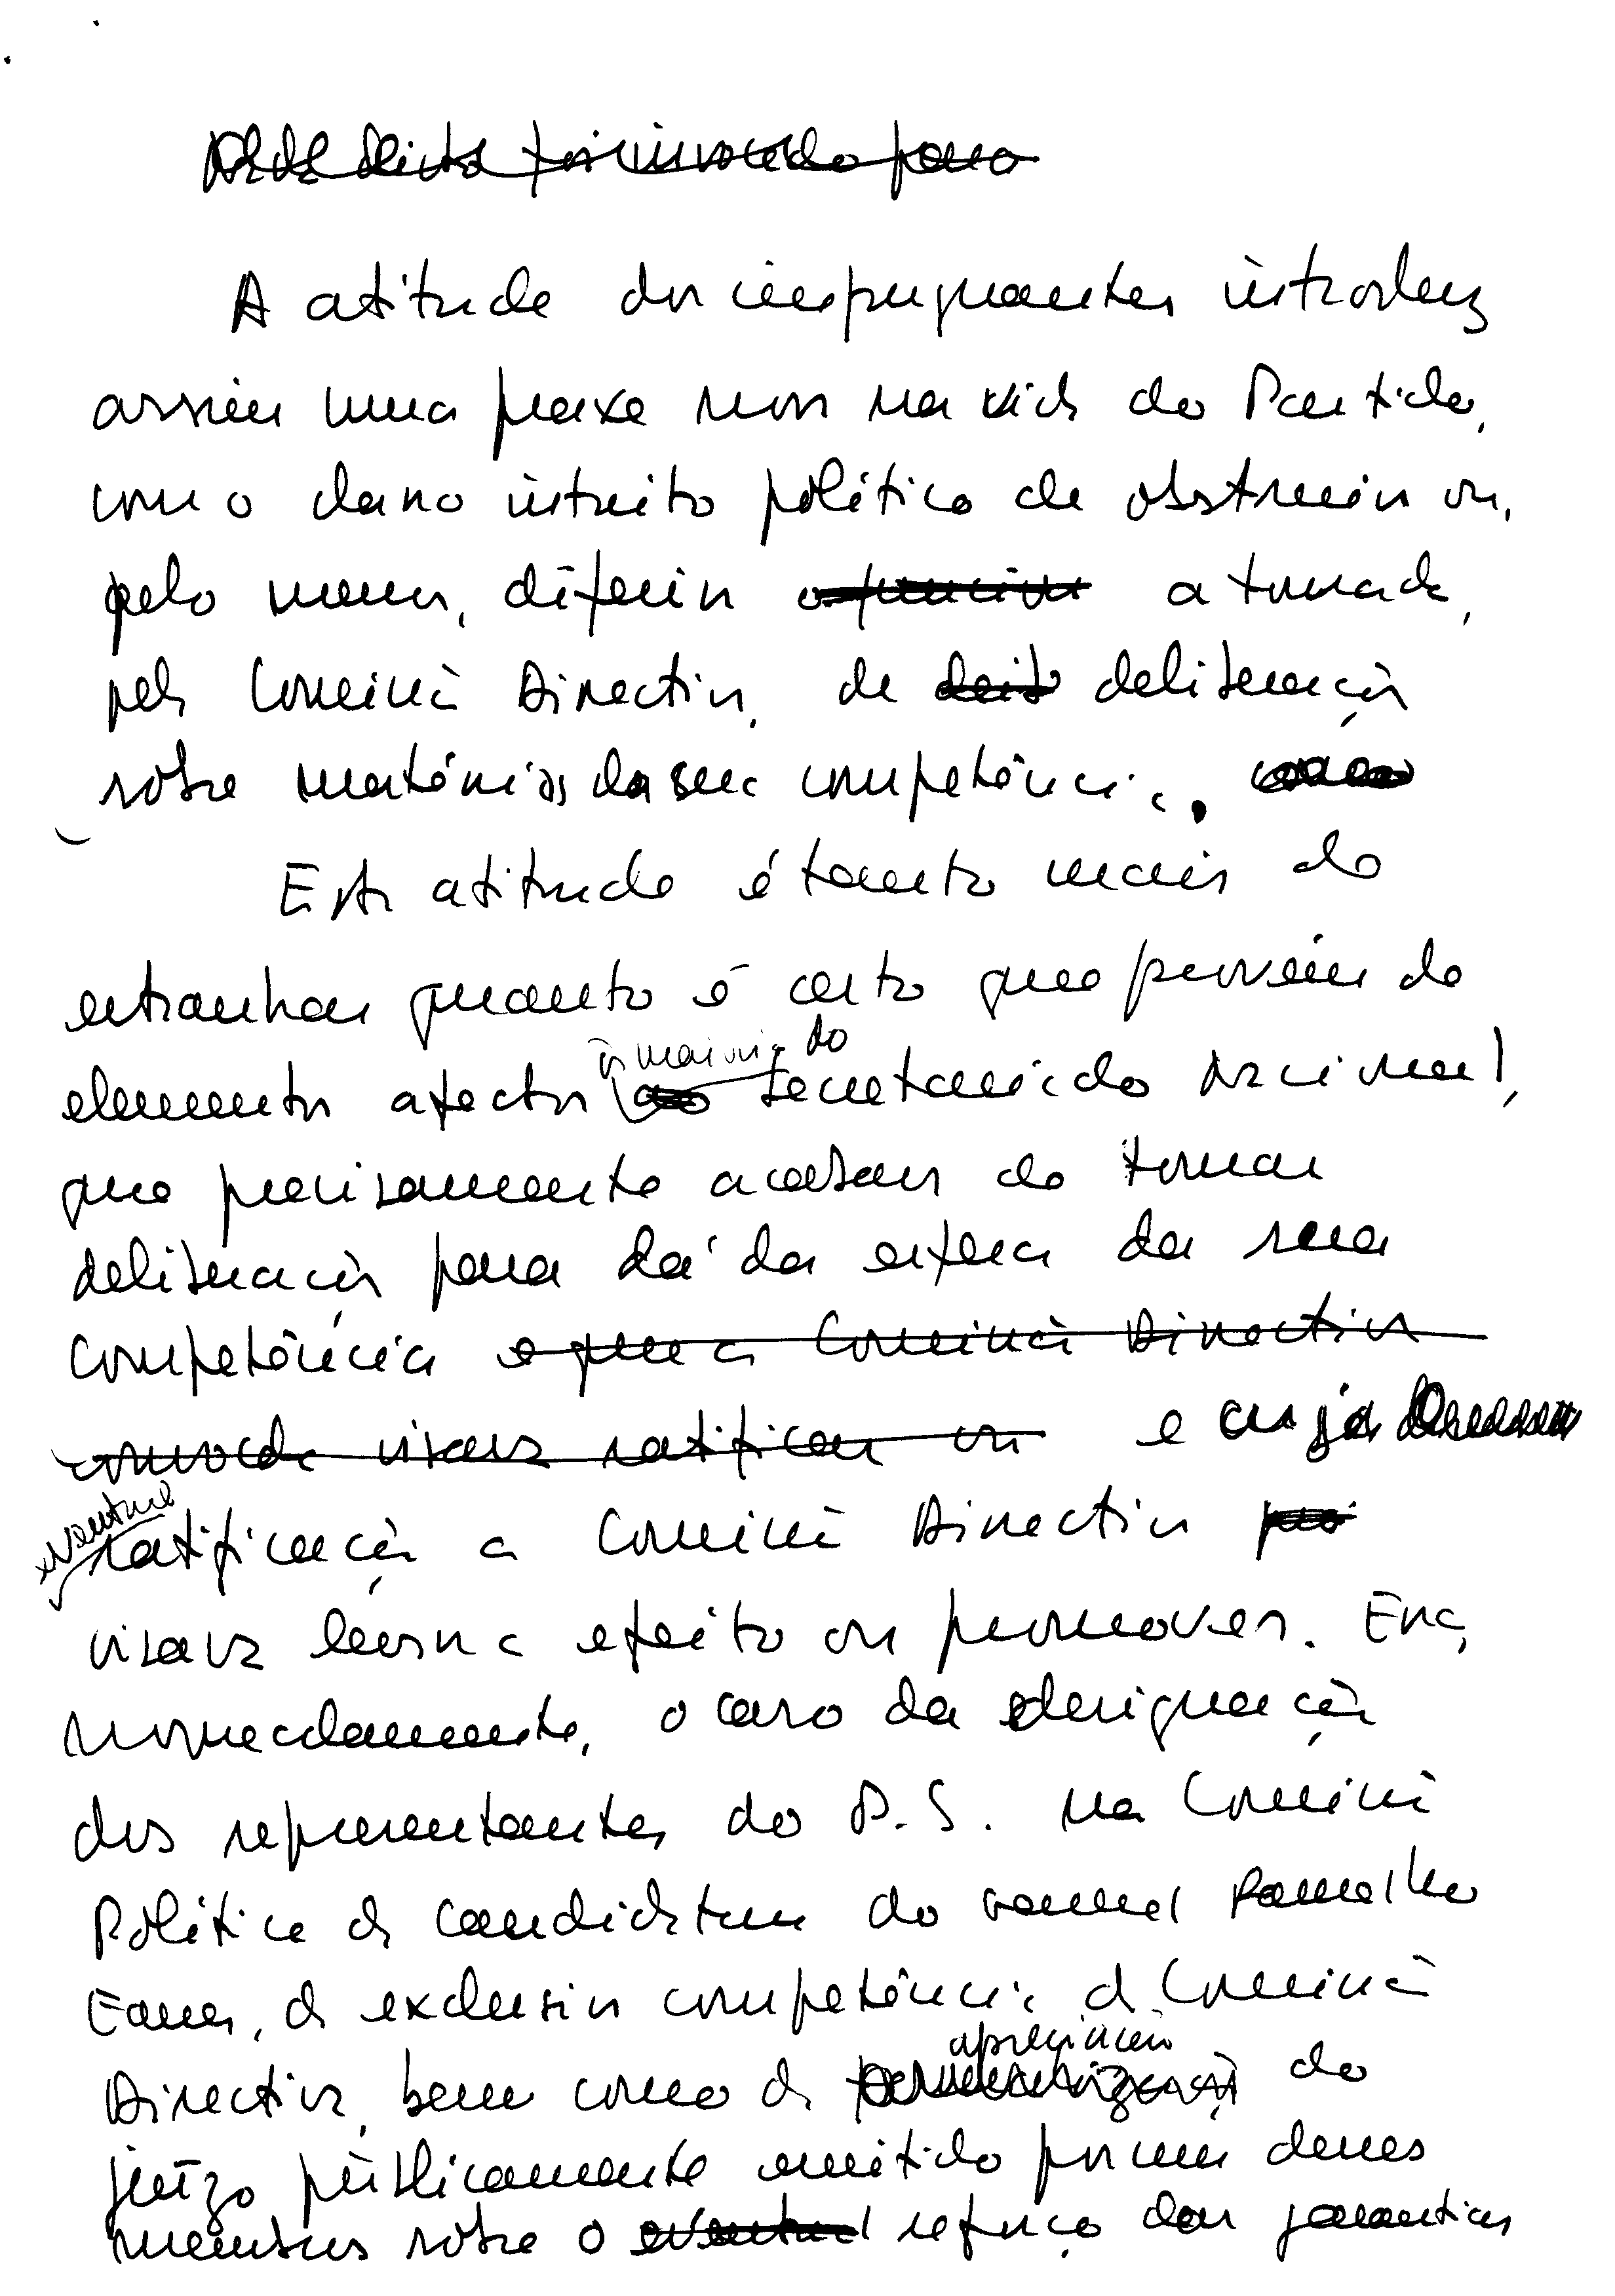 A atitude dos impugnantes introduz
assim uma praxe nova na vida do Partido,
com o claro intuito político de obstruir ou,
pelo menos, diferir a tomada,
pela Comissão Directiva, de deliberação
sobre matérias da sua competência.
Esta atitude é tanto mais de
estranhar quanto é certo que provém de
elementos afectos à maioria do Secretariado Nacional,
que precisamente acabam de tomar
deliberação para lá da esfera da sua
competência e que a Comissão Directiva
convocada visava ratificar ou e cuja
eventual ratificação a Comissão Directiva
visava levar a efeito ou promover. Era,
nomeadamente, o caso da designação
dos representantes do P.S. na Comissão
Política da candidatura do General Ramalho
Eanes, da exclusiva competência da Comissão
Directiva, bem como da apreciação do
juízo publicamente emitido por um desses
membros sobre o eventual reforço das garantias